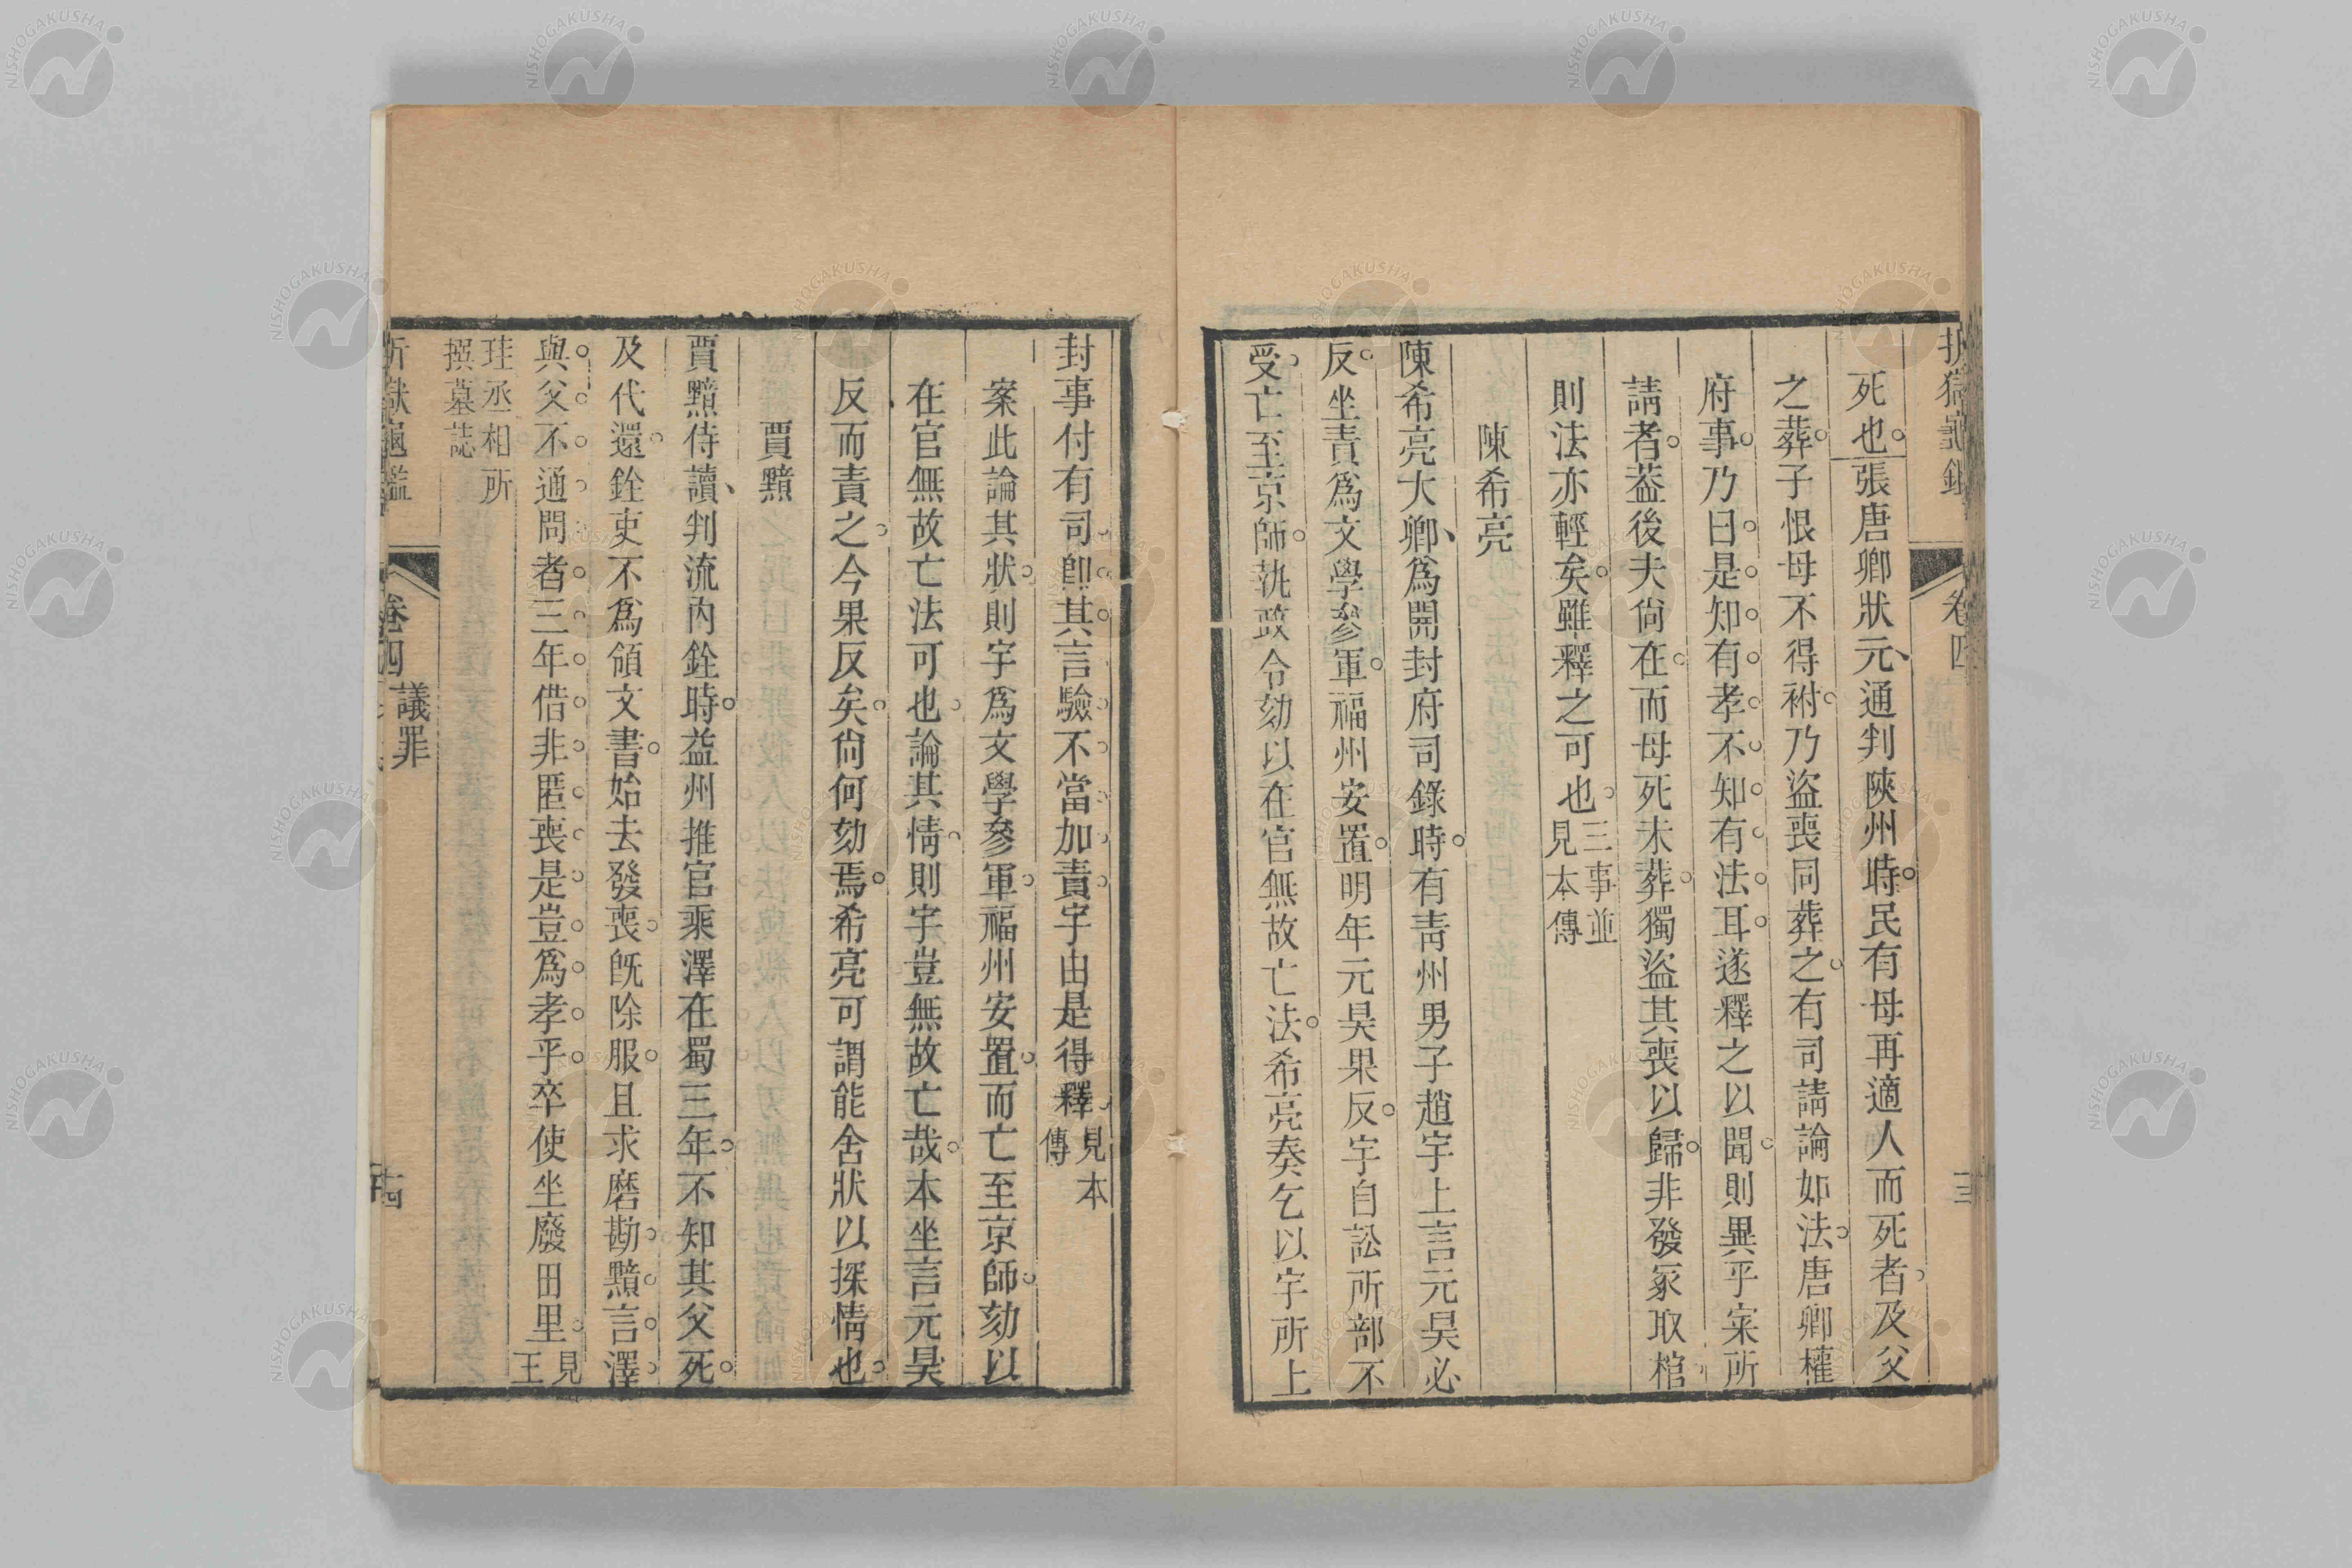 折獄龜鑑 卷四 三
死也張唐卿狀元通判陝州時民有母再適人而死者及父
之葬子恨母不得祔乃盜喪同葬之有司請論如法唐卿權
府事乃曰是知有孝不知有法耳遂釋之以聞則異乎寀所
請者葢後夫尙在而母死未葬獨盜其喪以歸非發冢取棺
則法亦輕矣雖釋之可也三事並見本傳
陳希亮
陳希亮大卿爲開封府司錄時有靑州男子趙宇上言元昊必
反坐責爲文學參軍福州安置明年元昊果反宇自訟所部不
受亡至京師執政令劾以在官無故亡法希亮奏乞以宇所上
封事付有司卽其言驗不當加責宇由是得釋見本傳
案此論其狀則宇爲文學參軍福州安置而亡至京師劾以
在官無故亡法可也論其情則宇豈無故亡哉本坐言元昊
反而責之今果反矣尙何劾焉希亮可謂能舍狀以探情也
賈黯
賈黯侍讀判流內銓時益州推官乘澤在蜀三年不知其父死
及代還銓吏不爲領文書始去發喪旣除服且求磨勘黯言澤
與父不通問者三年借非匿喪是豈爲孝乎卒使坐廢田里見王
珪丞相所撰墓誌
折獄龜鑑 卷四 議罪 十四